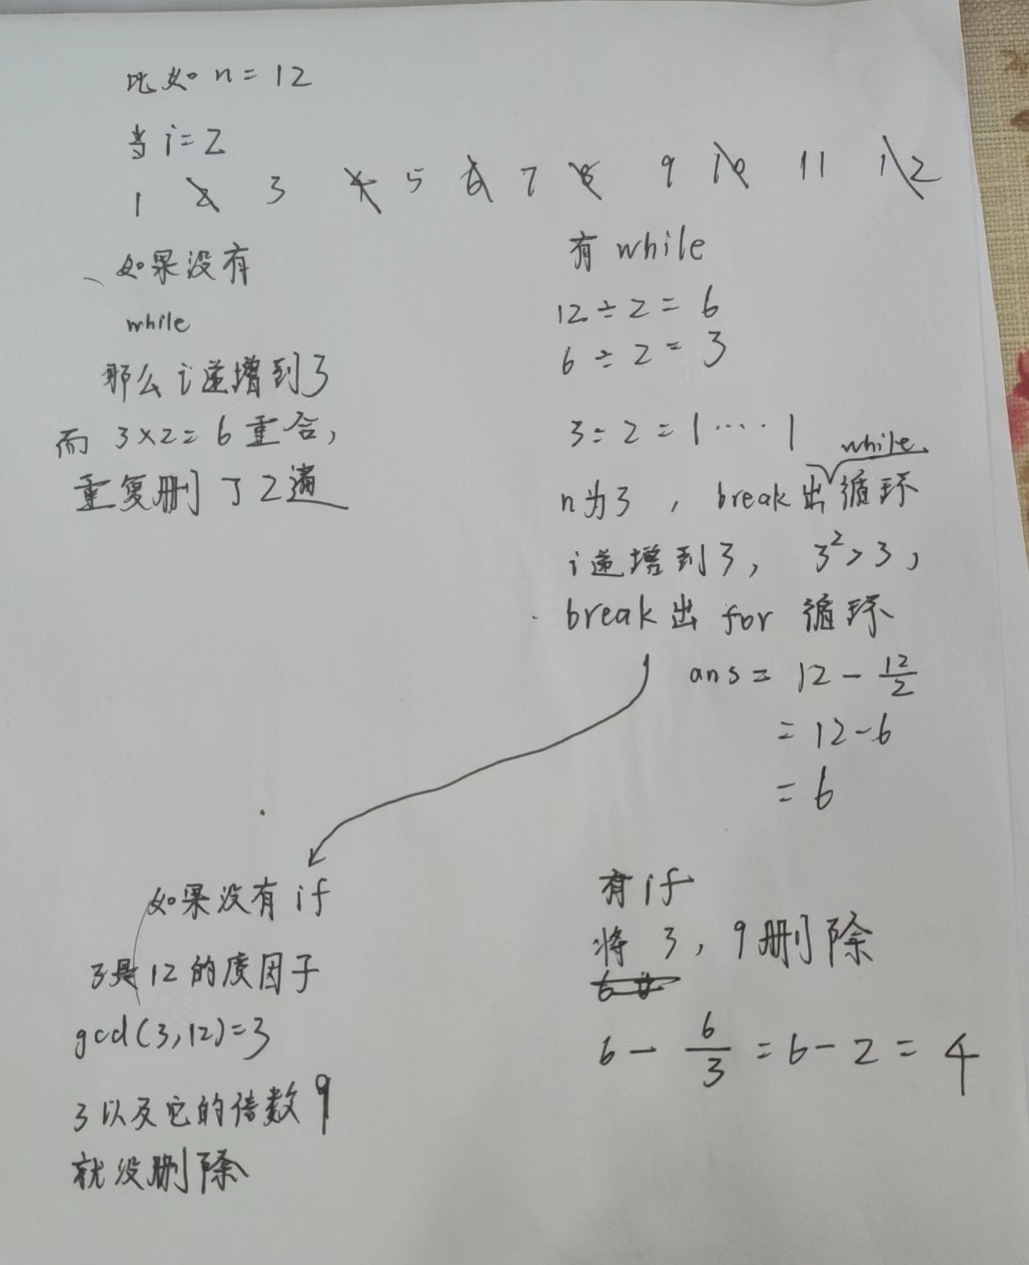 比如 n = 12
当 i = 2
1 2 3 4 5 6 7 8 9 10 11 12
、如果没有
while
那么 i 递增到3
而 3×2=6 重合,
重复删了2遍
有 while
12 ÷ 2 = 6
6 ÷ 2 = 3
3 ÷ 2 = 1 ···· 1
while
n为3 , break 出循环
i 递增到3, 3²>3,
break 出 for 循环
ans = 12 - 12/2
= 12-6
= 6
如果没有 if
3是12的质因子
gcd(3,12)=3
3以及它的倍数9
就没删除
有 if
将 3, 9删除
6 - 6/3 = 6 - 2 = 4